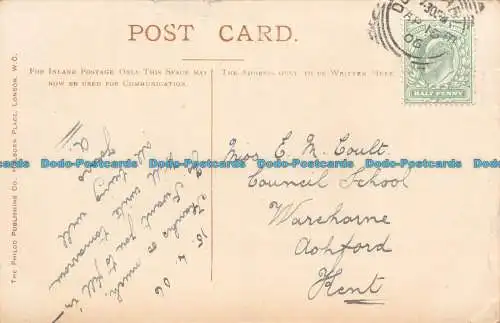 POST CARD.
FOR INLAND POSTAGE ONLY THIS SPACE MAY
NOW BE USED FOR COMMUNICATION.
THE ADDRESS ONLY TO BE WRITTEN HERE
HALF PENNY
AP 15
06
THE PHILCO PUBLISHING CO. HOLBORN PLACE, LONDON, W.C.
15. 4. 06
Thanks so much.
I want you to fill in
will write tomorrow
all being well
Miss E. M. Coult
Council School
Warehorne
Ashford
Kent
Dodo-Postcards Dodo-Postcards Dodo-Postcards Dodo-Postcards